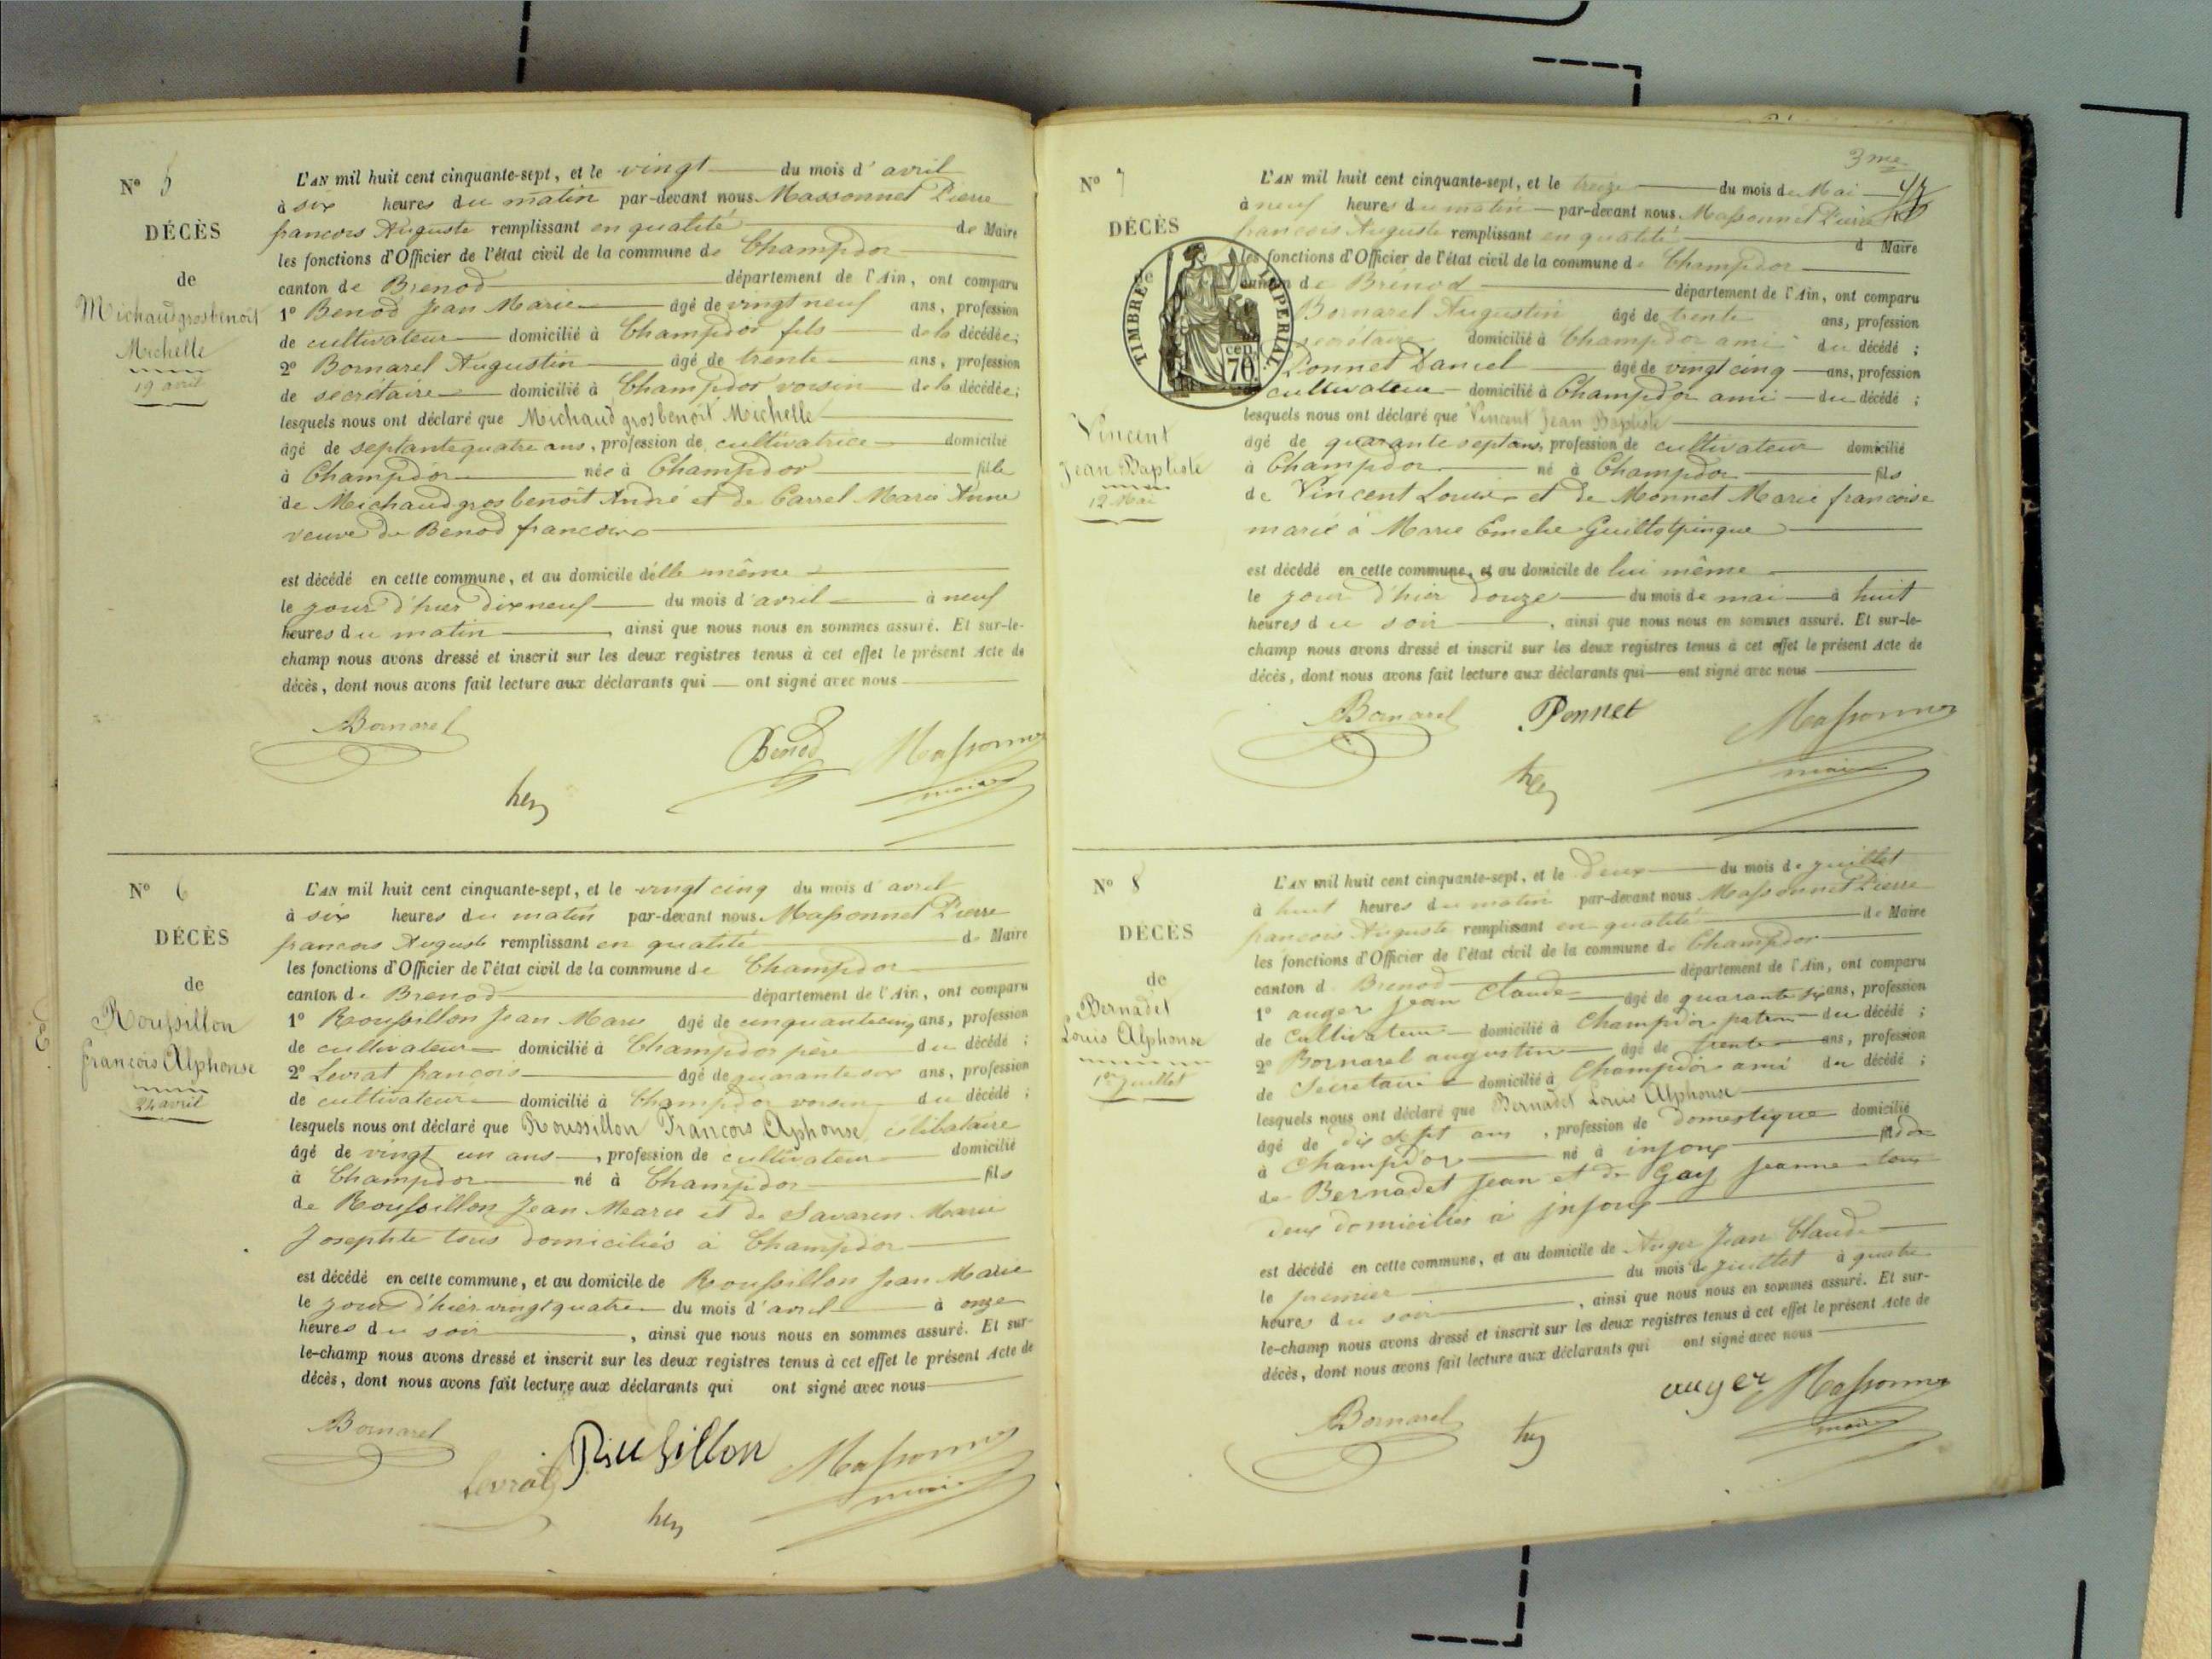 N° 5
DÉCÈS
de
Michaudgrosbenoit
Michelle
19 avril
L'AN mil huit cent cinquante-sept, et le vingt du mois d'avril
à six heures du matin par-devant nous Massonnet Pierre
francois Auguste remplissant en qualité de Maire
les fonctions d'Officier de l'état civil de la commune de Champdor
canton de Brenod département de l'Ain, ont comparu
1° Benod Jean Marie âgé de vingt neuf ans, profession
de cultivateur domicilié à Champdor fils de la décédée;
2° Bornarel Augustin âgé de trente ans, profession
de secrétaire domicilié à Champdor voisin de la décédée;
lesquels nous ont déclaré que Michaud grosbenoit Michelle
âgé de septantequatre ans, profession de cultivatrice domicilié
à Champdor née à Champdor fille
de Michaudgrosbenoit André et de Carrel Marie Anne
veuve de Benod francois
est décédé en cette commune, et au domicile d'elle même
le jour d'hier dixneuf du mois d'avril à neuf
heures du matin, ainsi que nous nous en sommes assuré. Et sur-le-
champ nous avons dressé et inscrit sur les deux registres tenus à cet effet le présent Acte de
décès, dont nous avons fait lecture aux déclarants qui ont signé avec nous
Bornarel
Benod Massonnet
maire
N° 6
DÉCÈS
de
Roussillon
françois Alphonse
24 avril
L'AN mil huit cent cinquante-sept, et le vingt cinq du mois d'avril
à six heures du matin par-devant nous Massonnet Pierre
francois Auguste remplissant en qualité de Maire
les fonctions d'Officier de l'état civil de la commune de Champdor
canton de Brenod département de l'Ain, ont comparu
1° Roussillon Jean Marie âgé de cinquantecinq ans, profession
de cultivateur domicilié à Champdor père du décédé;
2° Levrat francois âgé de quarante six ans, profession
de cultivateur domicilié à Champdor voisin du décédé;
lesquels nous ont déclaré que Roussillon Francois Alphonse célibataire
âgé de vingt un ans, profession de cultivateur domicilié
à Champdor né à Champdor fils
de Roussillon Jean Marie et de Savarin Marie
Josephte tous domiciliés à Champdor
est décédé en cette commune, et au domicile de Roussillon Jean Marie
le jour d'hier vingtquatre du mois d'avril à onze
heures du soir, ainsi que nous nous en sommes assuré. Et sur-
le-champ nous avons dressé et inscrit sur les deux registres tenus à cet effet le présent Acte de
décès, dont nous avons fait lecture aux déclarants qui ont signé avec nous
Bornarel
Levrat Roussillon Massonnet
maire
3me
N° 7
DÉCÈS
de
Vincent
Jean Baptiste
12 Mai
TIMBRE IMPERIAL
70 cen.
L'AN mil huit cent cinquante-sept, et le treize du mois de Mai
à neuf heures du matin par-devant nous Massonnet Pierre
francois Auguste remplissant en qualité d Maire
les fonctions d'Officier de l'état civil de la commune de Champdor
canton de Brénod département de l'Ain, ont comparu
Bornarel Augustin âgé de trente ans, profession
secrétaire domicilié à Champdor ami du décédé;
Ponnet Daniel âgé de vingt cinq ans, profession
cultivateur domicilié à Champdor ami du décédé;
lesquels nous ont déclaré que Vincent Jean Baptiste
âgé de quarante sept ans, profession de cultivateur domicilié
à Champdor né à Champdor fils
de Vincent Louis et de Monnet Marie francoise
marié à Marie Emelie Guillotpingue
est décédé en cette commune, et au domicile de lui même
le jour d'hier douze du mois de mai à huit
heures du soir, ainsi que nous nous en sommes assuré. Et sur-le-
champ nous avons dressé et inscrit sur les deux registres tenus à cet effet le présent Acte de
décès, dont nous avons fait lecture aux déclarants qui ont signé avec nous
Bornarel Ponnet Massonnet
maire
N° 8
DÉCÈS
de
Bernadet
Louis Alphonse
1er juillet
L'AN mil huit cent cinquante-sept, et le deux du mois de juillet
à huit heures du matin par-devant nous Massonnet Pierre
francois Auguste remplissant en qualité de Maire
les fonctions d'Officier de l'état civil de la commune de Champdor
canton d Brenod département de l'Ain, ont comparu
1° auger Jean Claude âgé de quarante six ans, profession
de Cultivateur domicilié à Champdor patron du décédé;
2° Bornarel augustin âgé de trente ans, profession
de Secretaire domicilié à Champdor ami du décédé;
lesquels nous ont déclaré que Bernadet Louis Alphonse
âgé de dix sept ans, profession de domestique domicilié
à Champdor né à injoux fils de
de Bernadet Jean et de Gay Jeanne tous
deux domiciliés à injoux
est décédé en cette commune, et au domicile de Auger Jean Claude
le premier du mois de juillet à quatre
heures du soir, ainsi que nous nous en sommes assuré. Et sur-
le-champ nous avons dressé et inscrit sur les deux registres tenus à cet effet le présent Acte de
décès, dont nous avons fait lecture aux déclarants qui ont signé avec nous
Bornarel auger Massonnet
maire